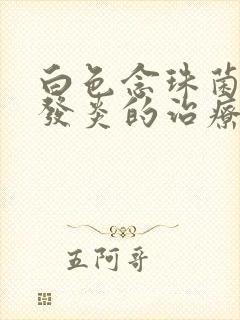 白色念珠菌
發炎的治療
五阿哥